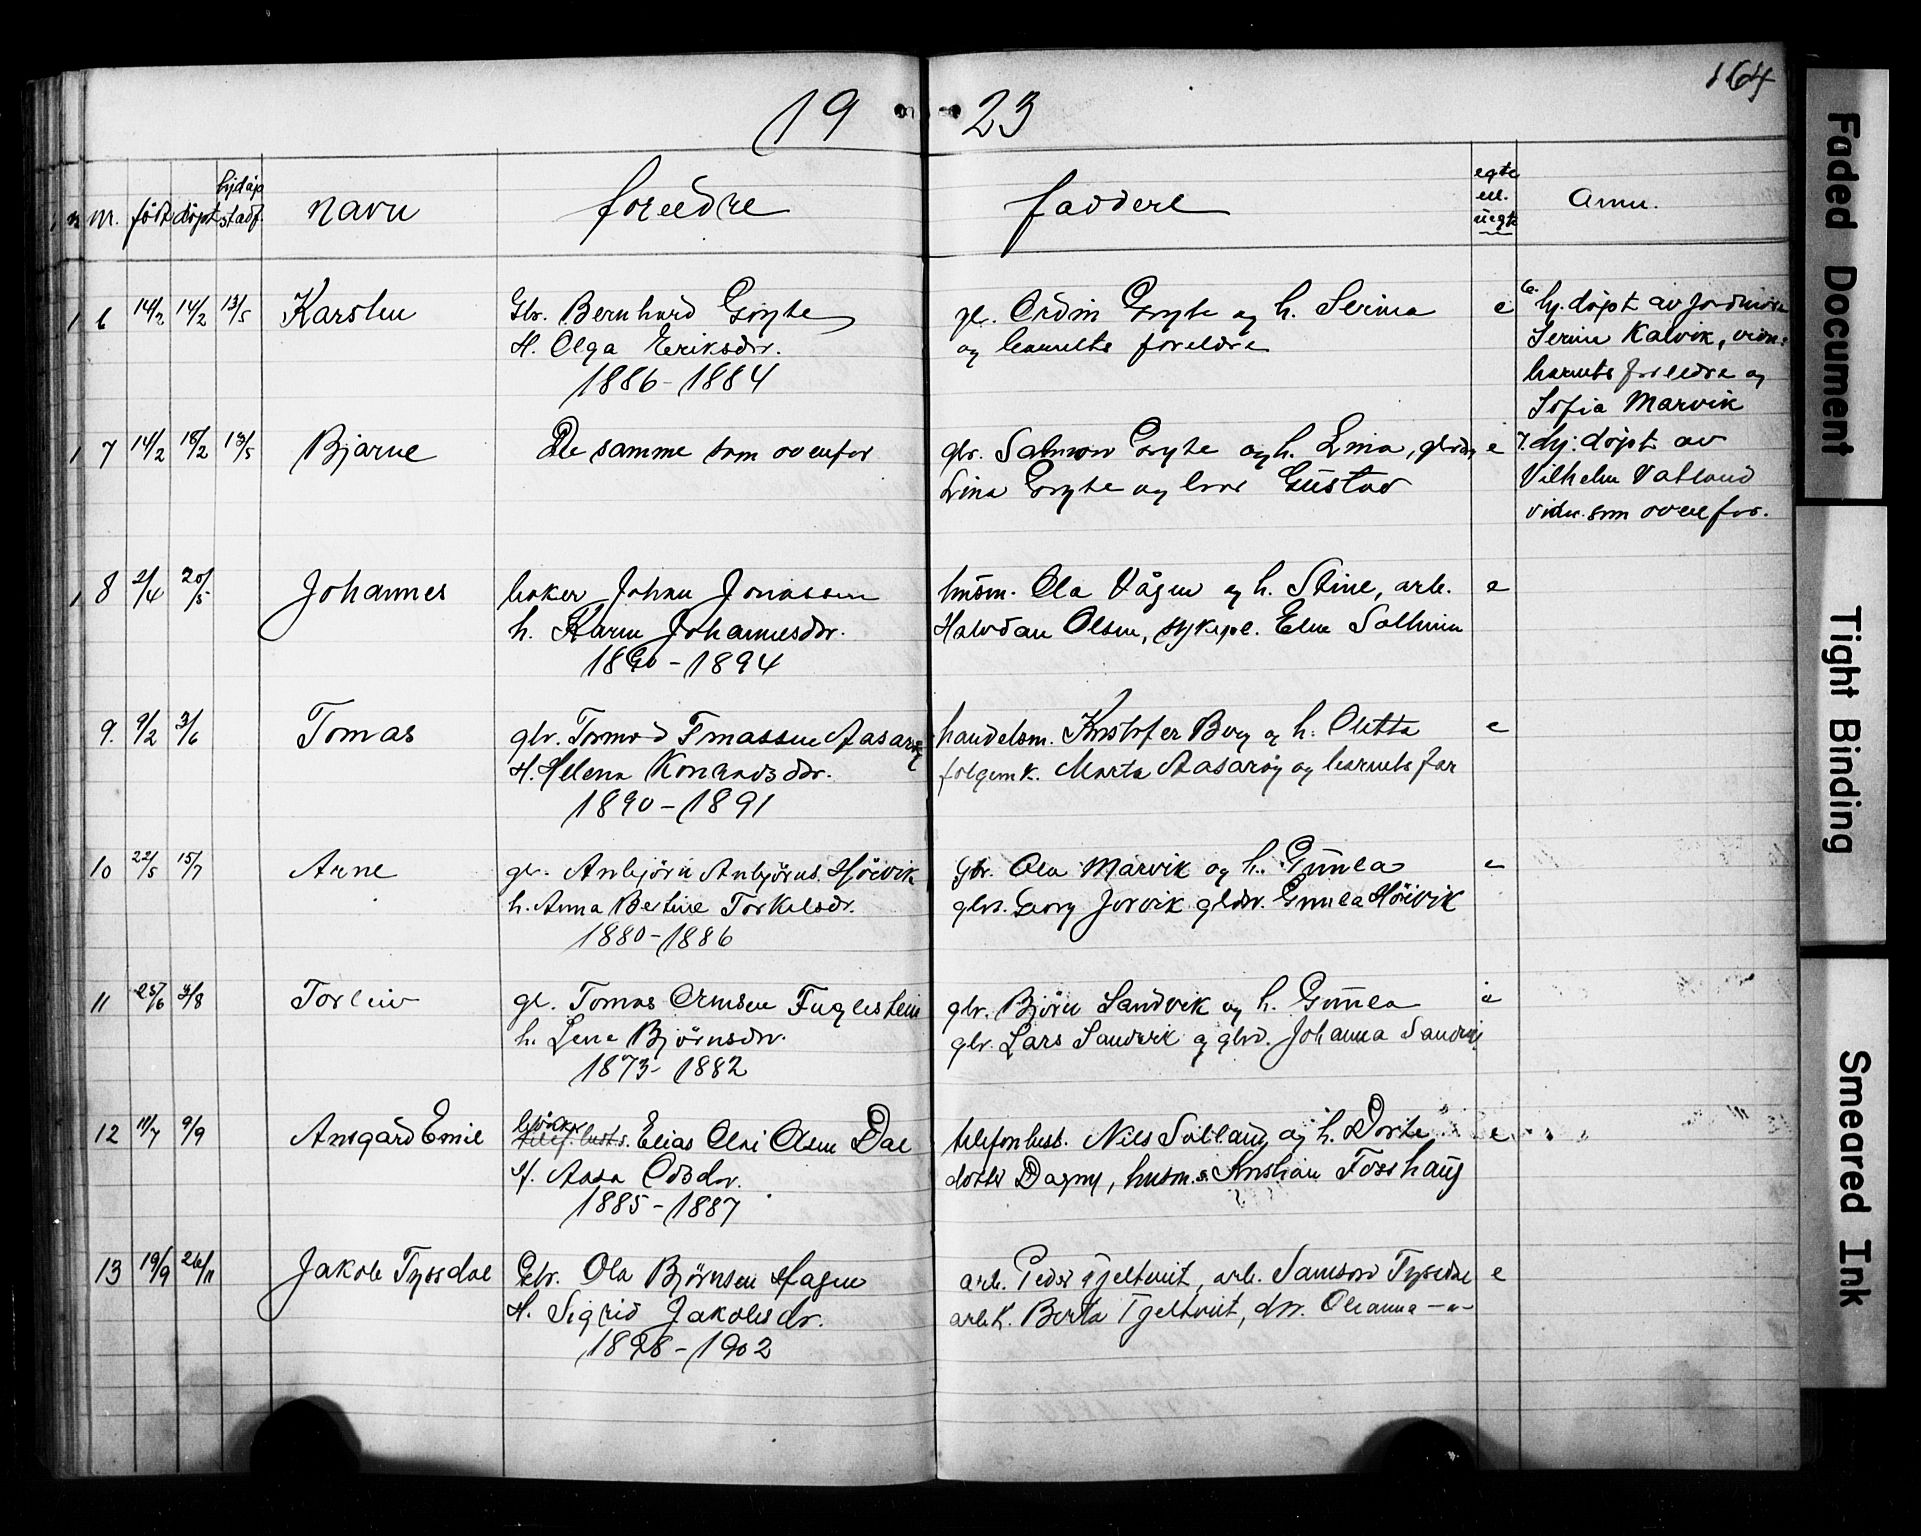 164
19 23
n m. født døpt hjdøp stadf. navn foreldre faddere egte ell. uegte Anm.
1 6 14/2 14/2 13/5 Karsten Gbr. Bernhard Gryte gl. Ordin Gryte og h. Serina e 6. hj. døpt av jordmora
H. Olga Eriksdtr. og barnets foreldre Serine Kalvik, vidn:
1886-1884 barnets foreldre og
Sofia Marvik
1 7 14/2 18/2 13/5 Bjarne De samme som ovenfor gbr. Salmon Gryte og h. Lina, e 7. hj. døpt av
Lina Gryte og bror Gustav Vilhelm Vatland
vidn. som ovenfor.
1 8 2/4 20/5 Johannes baker Johan Jonassen husm. Ola Vågen og h. Stine, arb. e
h. Karen Johannesdtr. Halvdan Olsen, sykepl. Elen Solheim
1890-1894
9. 9/2 3/6 Tomas gbr. Tormod Tmassen Aasarøy handelsm. Kristofer Berg og h. Oletta e
H. Helena Konradsdtr. folgemk. Marta Aasarøy og barnets far
1890-1891
10 22/5 15/7 Arne gl. Anbjørn Anbjørns. Høivik Gbr. Ola Marvik og h. Gunla e
h. Anna Bertine Torkelsdr. gbrs. Georg Jorvik gbdtr. Gunla Høivik
1880-1886
11 25/6 3/8 Torleiv gl. Tomas Ormsen Fuglestein gbr. Bjørn Sandvik og h. Gunla e
h. Lene Bjørnsdtr. gbr. Lars Sandvik og gbrd. Johanna Sandvik
1873-1882
12 11/7 9/9 Ansgard Emil telef. best. Elias Olai Olsen Dal telefonbest. Nils Solland og h. Dorte e
H. Aasa Odsdtr. dotter Dagny, husm.s. Kristian Fosshaug
1885-1887
13 19/9 26/11 Jakob Tysdal Gbr. Ola Bjørnsen Hagen arb. Peder Tjeltveit, arb. Samson Tysdal e
H. Sigrid Jakobsdr. arb.k. Berta Tjeltveit, dtr. Oleanna -"-
1898-1902
Faded Document
Tight Binding
Smeared Ink